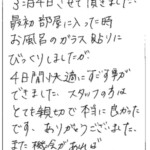 3泊4日させて頂きました。
最初部屋に入って時
お風呂のガラス貼りに
びっくりしましたが、
4日間快適にすごす事が
できました。スタッフの方は
とても親切で本当に良かった
です。ありがとうございました。
また機会があれば